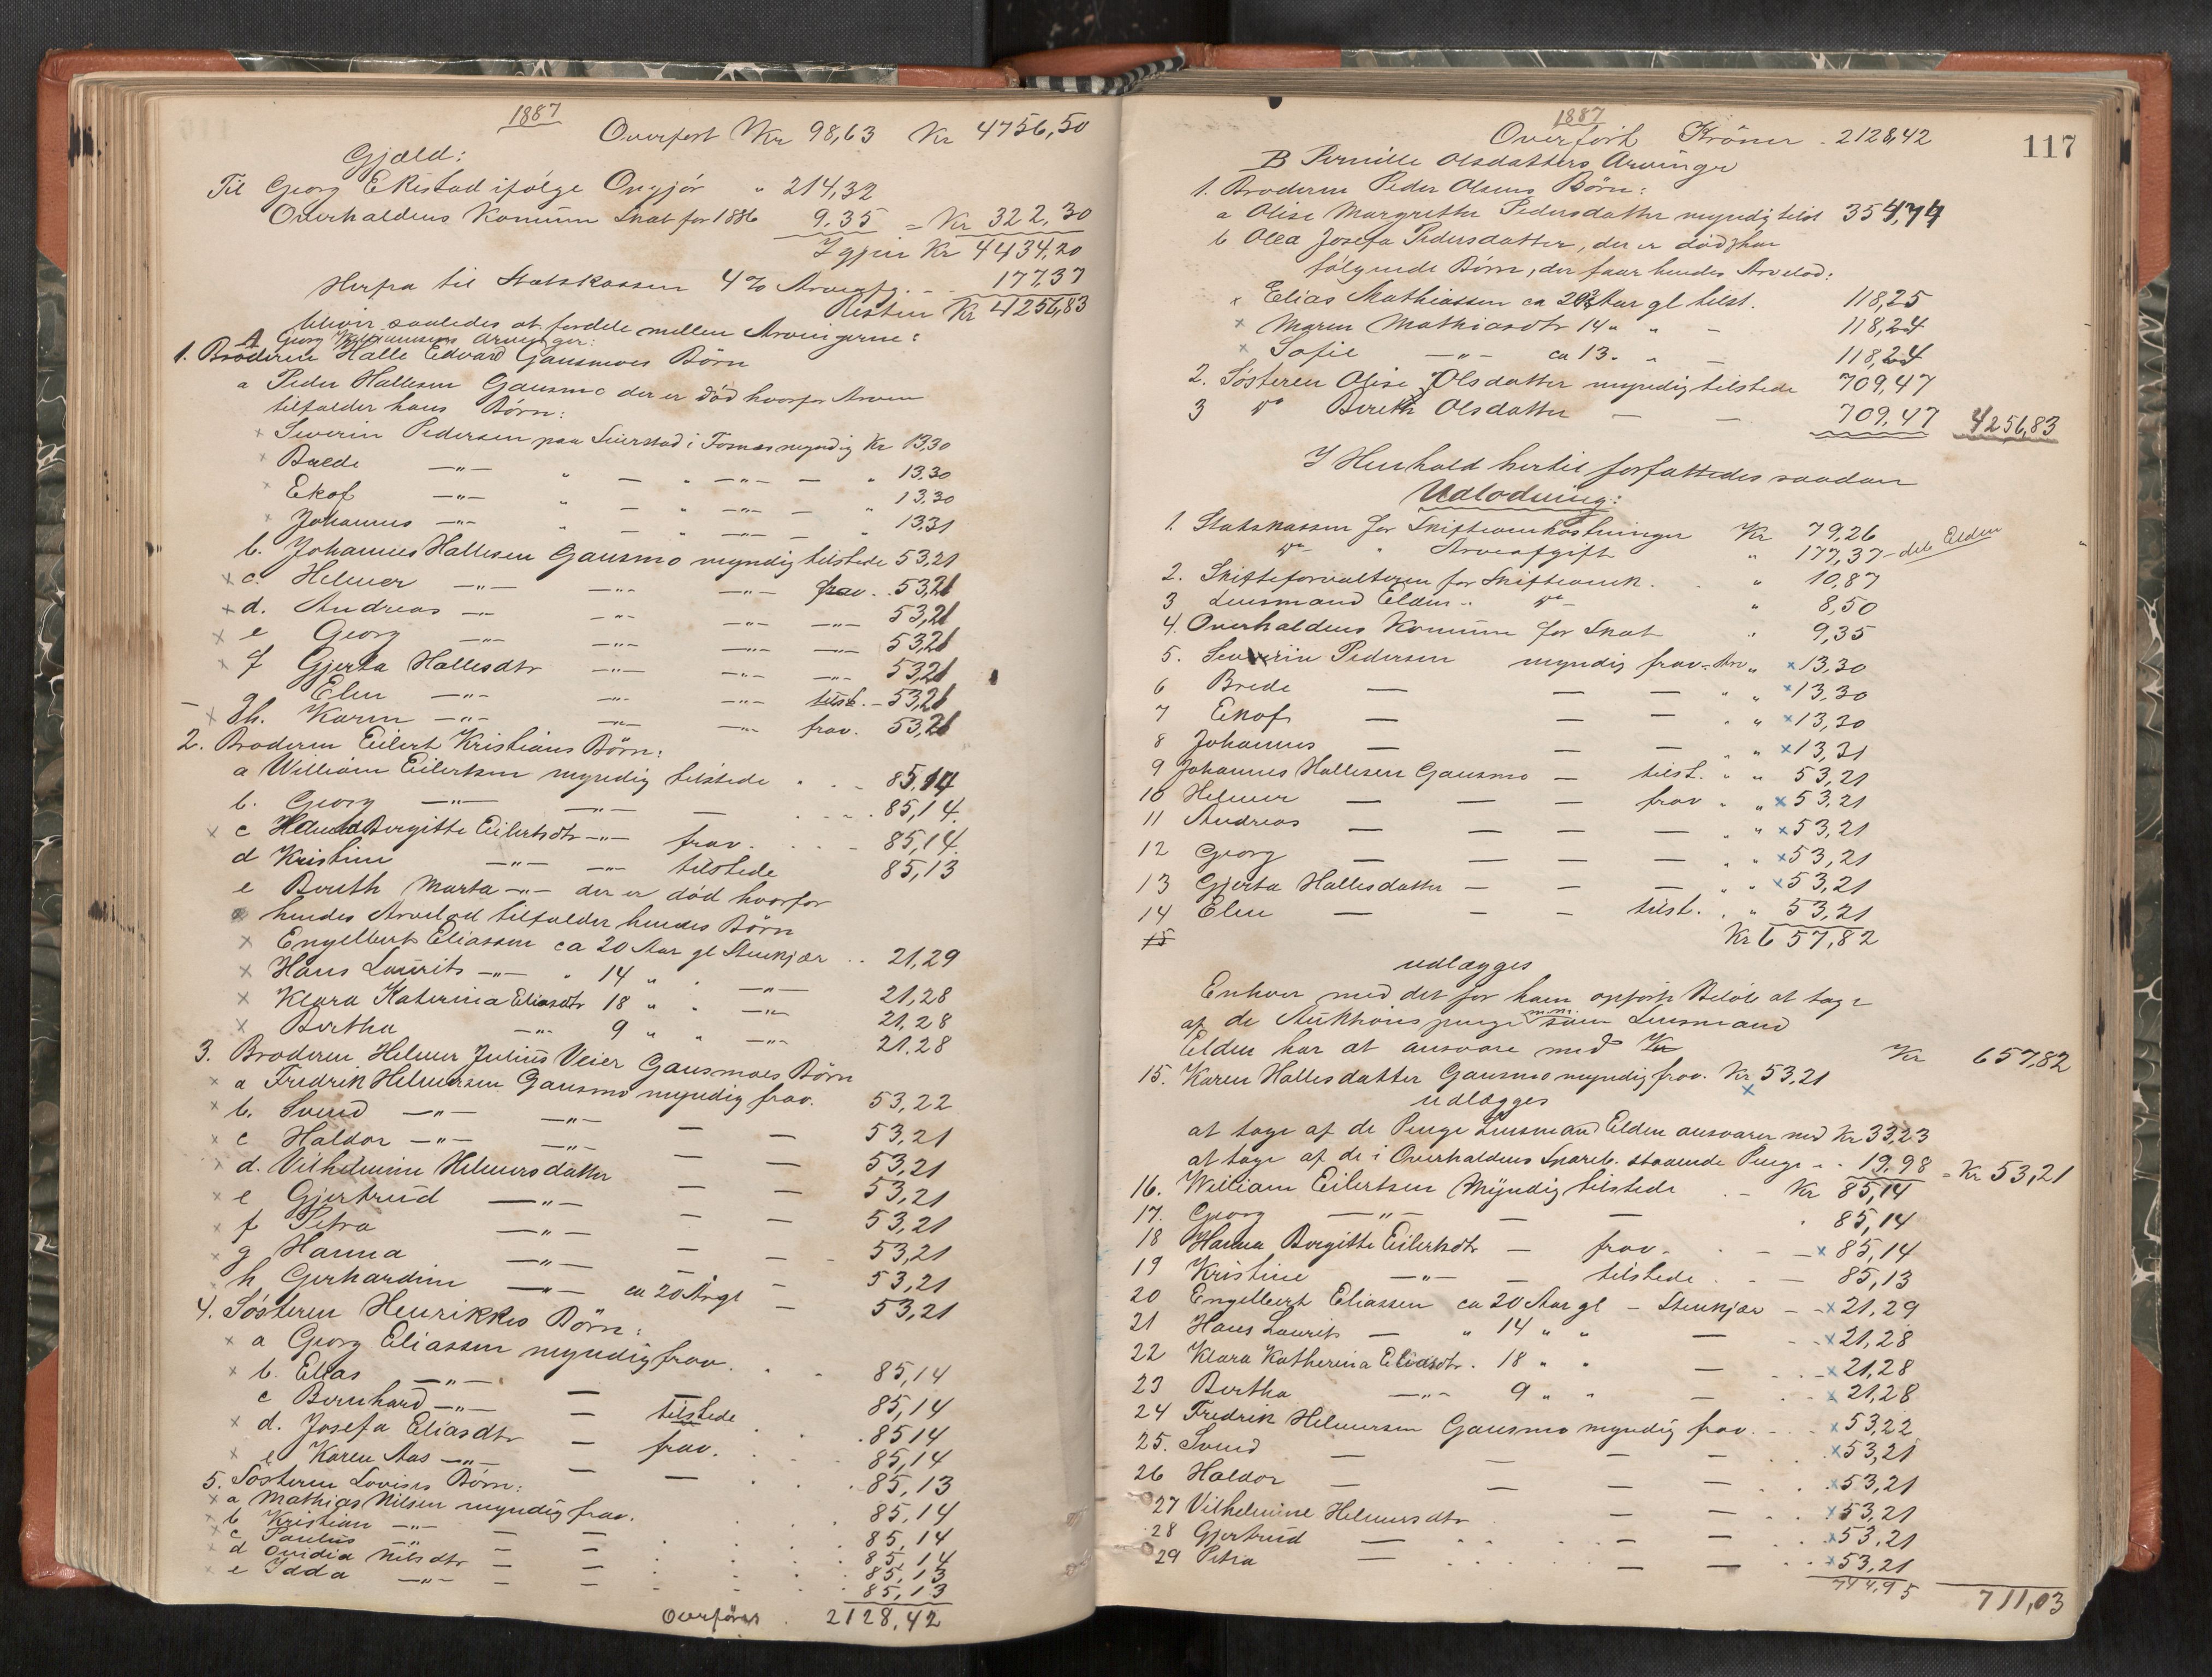 1887
Overført Kr 98,63 Kr 4756,50
Gjæld:
Til Georg Ekestad ifølge Opgjør " 214,32
Overhaldens Komune Skat for 1886 9.35 = Kr 322,30
Igjen Kr 4434,20
Herfra til Statskassen 4% Arveafg. - - 177,37
Resten Kr 4256,83
bliver saaledes at fordele mellem Arvingerne:
A Georg Arvinger:
1. Broderen Halle Edvard Gausmoes Börn
a Peder Hallesen Gausmo der er död hvorfor Arven
tilfalder hans Börn:
x Severin Pedersen paa Seierstad i Fosnes myndig Kr 13,30
x Brede -"- " — " -"- — " 13,30
x Ekof -"- " — " -"- — " 13,30
x Johannes -"- " — " -"- — " 13,31
b. Johannes Hallesen Gausmo myndig tilstede 53,21
x c. Helmer -"- -"- -"- frav. . 53,21
x d. Andreas -"- -"- -"- -"- 53,21
x e Georg -"- -"- -"- -"- 53,21
x f Gjerta Hallesdtr -"- -"- -"- 53,21
g Elen -"- -"- -"- tilst. - 53,21
x h. Karen -"- -"- -"- frav. 53,21
2. Broderen Eilert Kristians Börn:
a William Eilertsen myndig tilstede . . - 85,14
b. Georg -"- -"- — . . . . 85,14.
x c Hanna Birgitte Eilertsdtr -"- frav. . . - 85,14.
d Kristine -"- -"- tilstede 85,13
e Bereth Marta -"- der er död hvorfor
hendes Arvelod tilfalder hendes Börn
x Engelbert Eliassen ca 20 Aar gl Stenkjær . . 21,29
x Hans Laurits -"- " 14 " . -"- 21,28
x Klara Katerina Eliasdtr 18 " . -"- 21,28
x Bertha -"- 9 " " -"- 21.28
3. Broderen Helmer Julius Veier Gausmoes Börn
x a Fredrik Helmersen Gausmo myndig frav. 53,22
x b. Svend -"- -"- — — 53,21
x c Haldor -"- -"- — — 53,21
x d. Vilhelmine Helmersdatter — — 53,21
x e Gjertrud -"- — — 53,21
x f Petra -"- — — 53,21
x g Hanna -"- — — 53,21
h. Gerhardine -"- ca 20 Ar gl — 53,21
4. Søsteren Henrikkes Börn:
x a Georg Eliassen myndig frav. . . 85,14
x b. Elias -"- — — 85,14
c Bernhard -"- — tilstede . 85 14
x d. Josefa Eliasdtr — frav. . . 85,14
x e Karen Aas -"- — — . . 85,13
5. Søsteren Lovises Börn:
x a Mathias Nilsen myndig frav. . . . 85,14
x b Kristian -"- — — . . . 85,14
x c Paulus -"- — — . . . 85,14
x d Ovidia Nilsdtr — — . . . 85,13
x e Idda -"- — — . . . 85,13
Overføres . 2128,42
1887
Overført Kröner . 2128,42
117
B Pernille Olsdatters Arvinger
1. Broderen Peder Olsens Börn:
a Olise Margrethe Pedersdatter myndig tilst 354,74
b Olea Josefa Pedersdatter, der er död & har
følgende Börn, der faar hendes Arvelod:
x Elias Mathiassen ca 20 Aar gl tilst. 118,25
x Maren Mathiasdtr 14 " " - 118,24
x Sofie -"- ca 13. " - 118,24
2. Søsteren Olise Olsdatter myndig tilstede 709,47
3 do Bereth Olsdatter — — 709,47 4256,83
I Henhold hertil forfattedes saadan
Udlodning:
1. Statskassen for Skifteomkostninger Kr 79,26
do - " Arveafgift " 177,37 - deb. Elden
2. Skifteforvalteren for Skifteomk. . " 10,87
3 Lensmand Elden - " do - " 8,50
4. Overhaldens Komune for Skat " 9,35
5. Severin Pedersen myndig frav. Arv " x 13,30
6 Brede — — — " " x 13,30
7 Ekof — — — " " x 13,30
8 Johannes — — — " " x 13,31
9 Johannes Hallesen Gausmo — tilst. " " 53,21
10 Helmer — — — frav " " x 53,21
11 Andreas — — — — " " x 53,21
12 Georg — — — — " " x 53,21
13 Gjerta Hallesdatter — — — " " x 53,21
14 Elen — — — tilst. " " 53,21
15 Kr 657,82
udlægges
Enhver med det for ham opførte Beløb at tage
af de Auktionspenge m.m. som Lensmand
Elden har at ansvare med Kr Kr 657,82
15. Karen Hallesdatter Gausmo myndig frav. Kr 53,21
x
udlægges
at tage af de Penge Lensmand Elden ansvarer med Kr 33,23
at tage af de i Overhaldens Spareb. staaende Penge - . 19,98 = Kr 53,21
16. William Eilertsen Myndig tilstede . - Kr 85,14
17. Georg -"- — — . 85,14
18 Hanna Birgitte Eilertsdtr — frav. . - — x 85,14
19 Kristine -"- — tilstede . - — 85,13
20 Engelbert Eliassen ca 20 Aar gl - Stenkjær - - x 21,29
21 Hans Laurits — " 14 " " — - - x 21,28
22 Klara Katherina Eliasdtr. 18 " " — . . x 21,28
23 Bertha -"- 9 " " — . x 21,28
24 Fredrik Helmersen Gausmo myndig frav. - . x 53,22
25. Svend — — — — . . x 53,21
26 Haldor — — — — . . x 53,21
27 Vilhelmine Helmersdtr — — . . x 53,21
28 Gjertrud — . . . — — . . x 53,21
29 Petra — . . . — — . . x 53,21
744,95 711,03